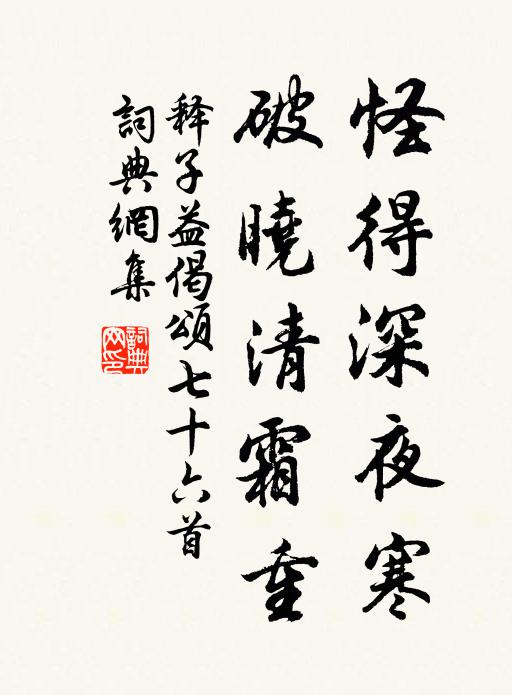 怪得深夜寒
破曉清霜重
释子益偈頌七十六首
詞典網集
詞典網印